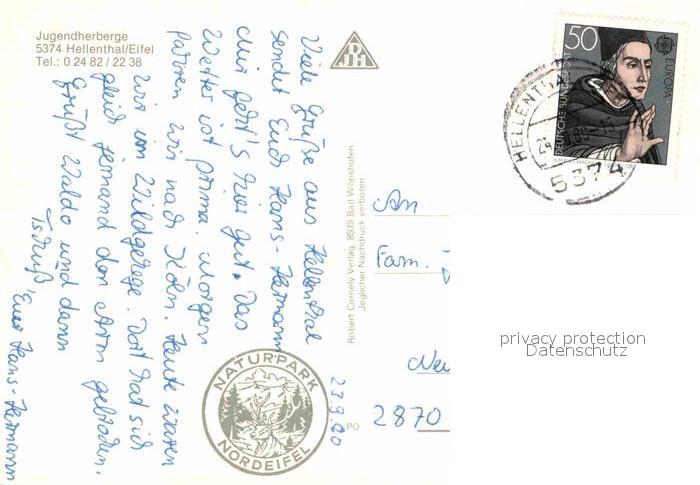 Jugendherberge
5374 Hellenthal/Eifel
Tel.: 0 24 82 / 22 38
DJH
Viele Grüße aus Hellenthal
sendet Euch Hans-Hermann
mir geht's hier gut. Das
Wetter ist prima. Morgen
fahren wir nach Köln. Heute waren
wir im Wildgehege. Dort hat sich
gleich jemand den Arm gebrochen.
Grüßt Waldo und dann
Tschüß,
Euer Hans-Hermann
23.9.80
NATURPARK
NORDEIFEL
Robert Cornely Verlag, 8939 Bad Wörishofen
Jeglicher Nachdruck verboten
PO
An
Fam.
2870
50
DEUTSCHE BUNDESPOST
EUROPA
HELLENTHAL
5374
privacy protection
Datenschutz